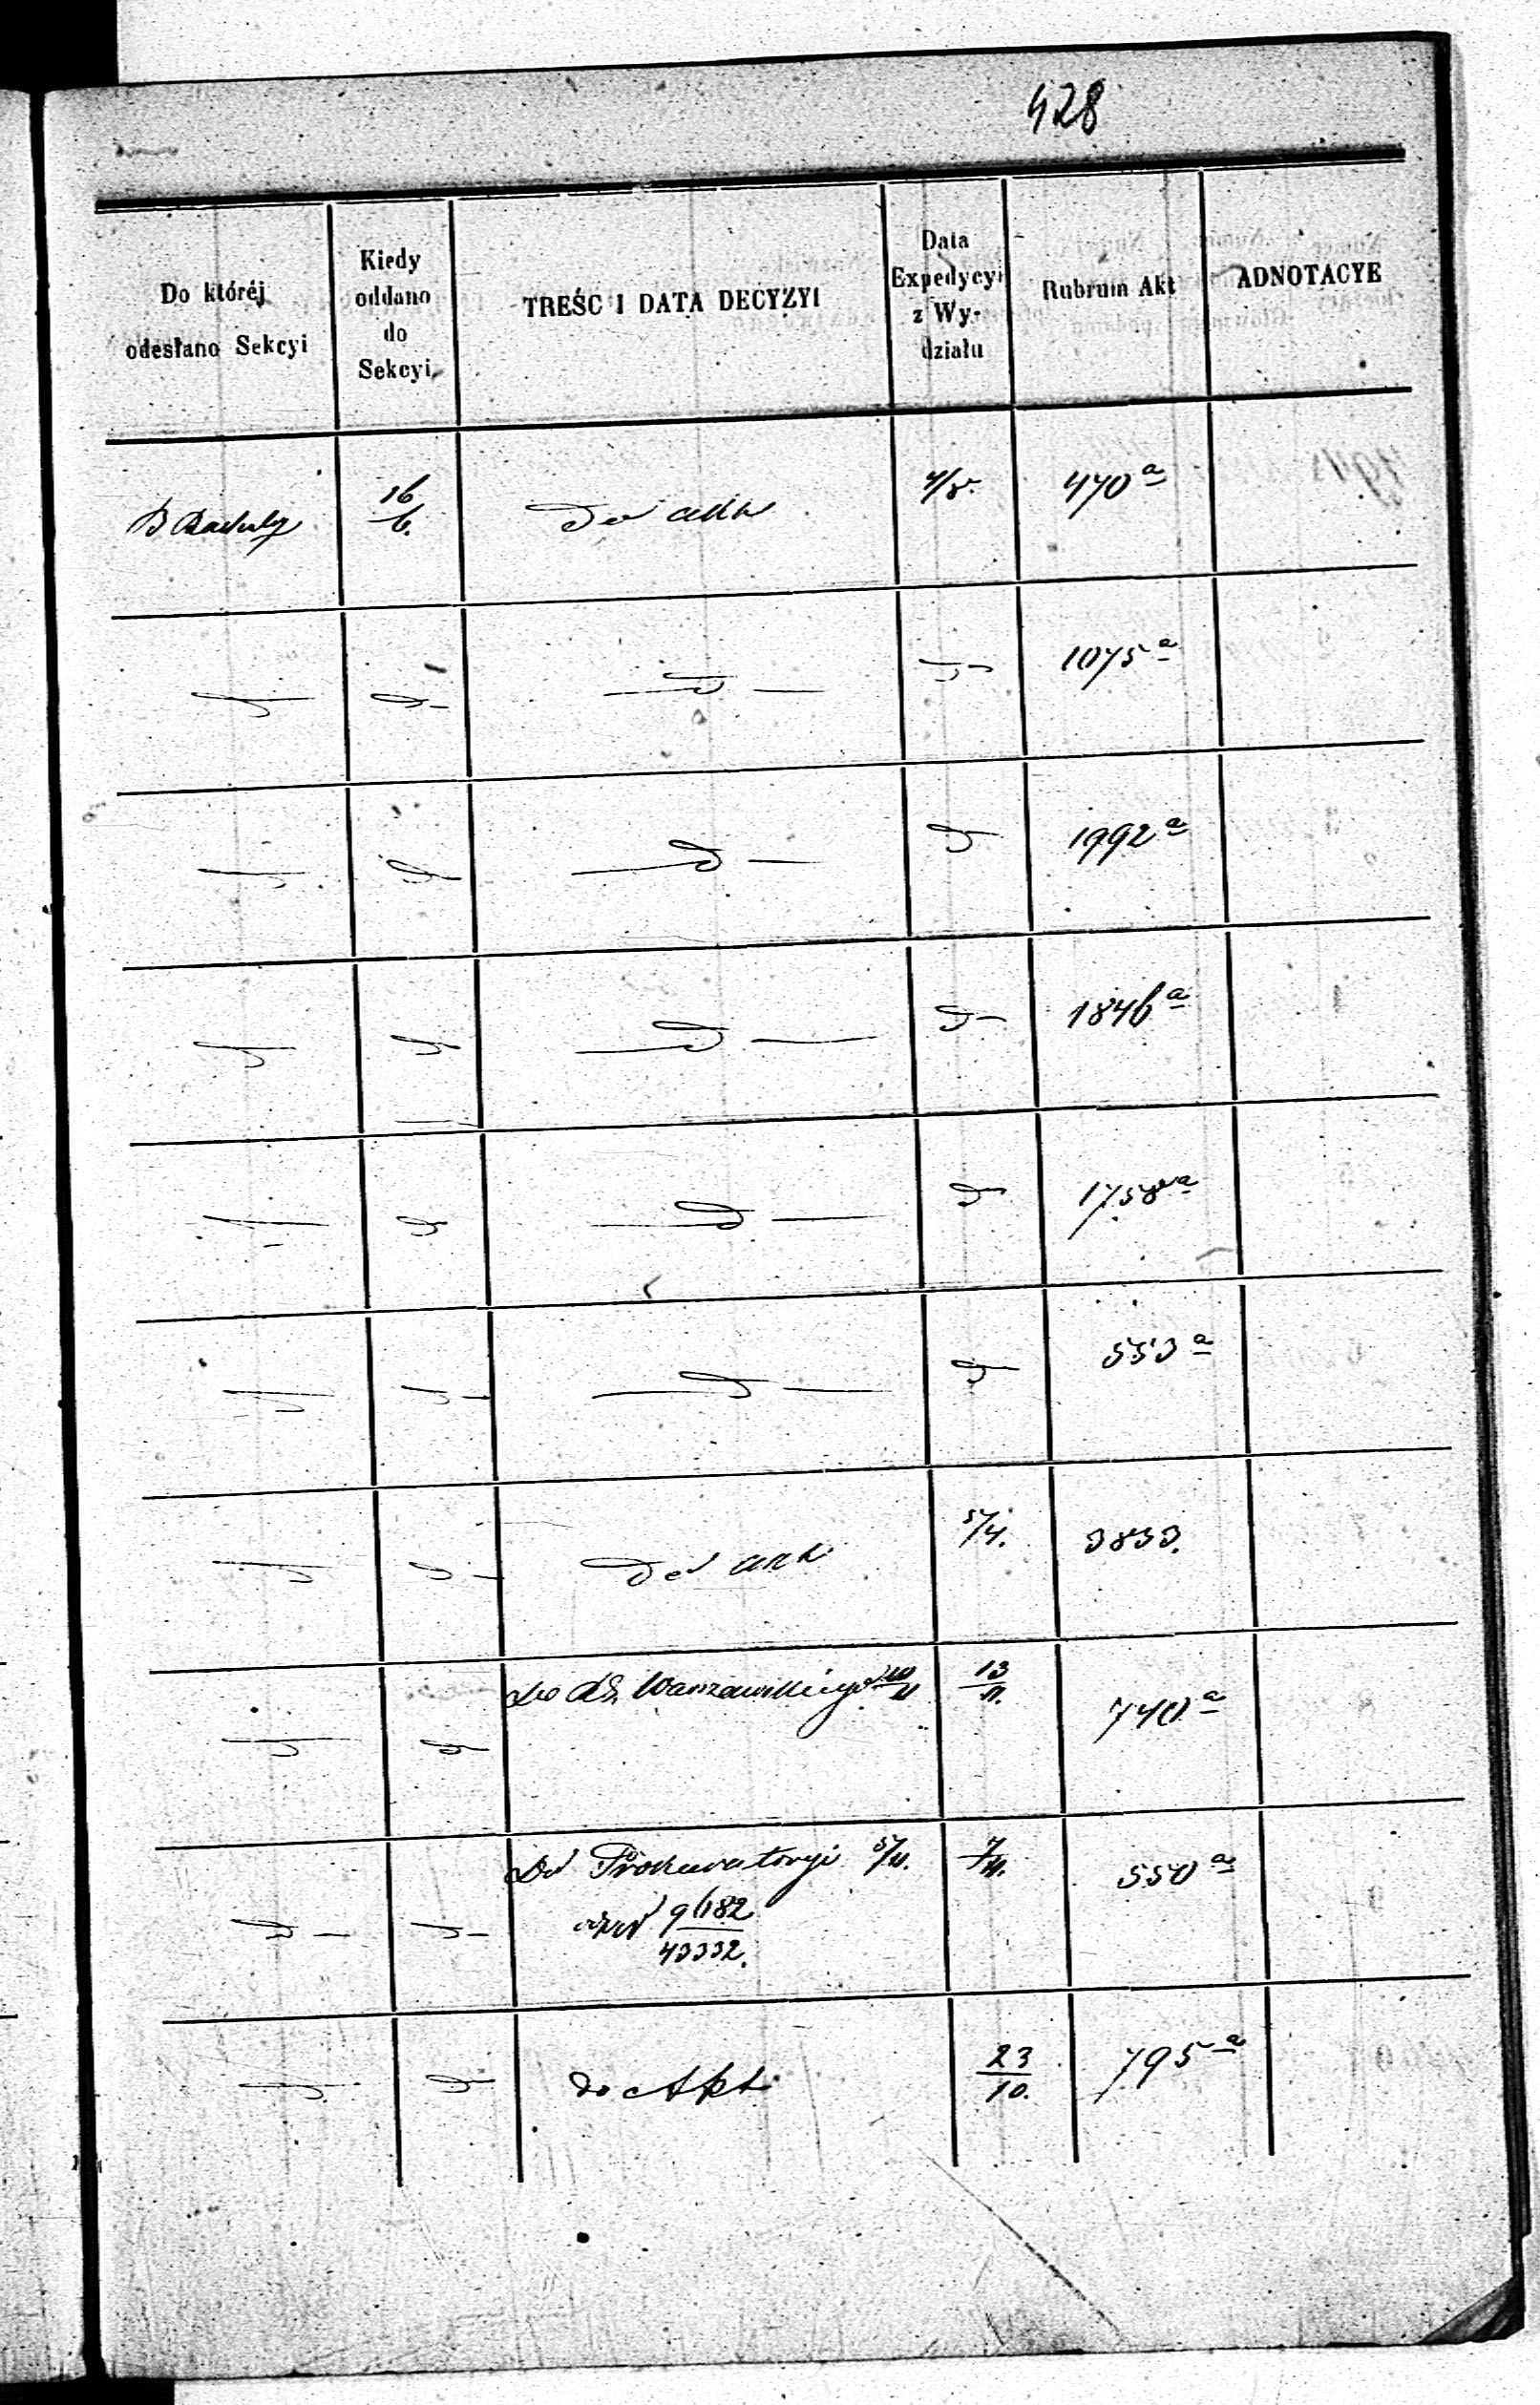 428
Do któréj
odesłano Sekcyi
Kiedy
oddano
do
Sekcyi
TREŚC I DATA DECYZYI
Data
Expedycyi
z Wy-
działu
Rubrum Akt
ADNOTACYE
16/6. Do akt 4/8. 470 a
1075 a
1992 a
1846 a
1758 a
553 a
Do akt 5/4. 3833.
do Warszawskiego 10/11 13/11. 740 a
Do Prokuratoryi 5/11. 7/11. 550 a
9682
43332.
do Akt 23/10. 795 a